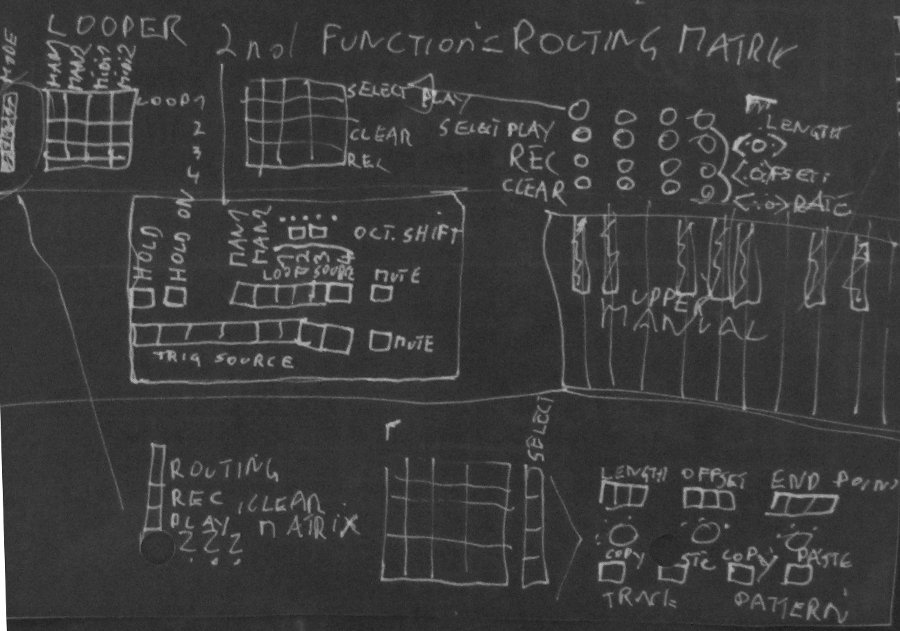 LOOPER
2nd FUNCTION = ROUTING MATRIX
MODE
MAN1
MAN2
MIDI1
MIDI2
LOOP 1
2
3
4
SELECT PLAY
CLEAR
REC
SELECT PLAY
REC
CLEAR
LENGTH
OFFSET
RATE
HOLD
HOLD ON
MAN1
MAN2
OCT. SHIFT
1 2 3 4
LOOP SOURCE
MUTE
MUTE
TRIG SOURCE
UPPER
MANUAL
ROUTING
REC
CLEAR
PLAY
MATRIX
? ? ?
SELECT
LENGTH
OFFSET
END POINT
COPY
COPY
PASTE
TRACK
PATTERN